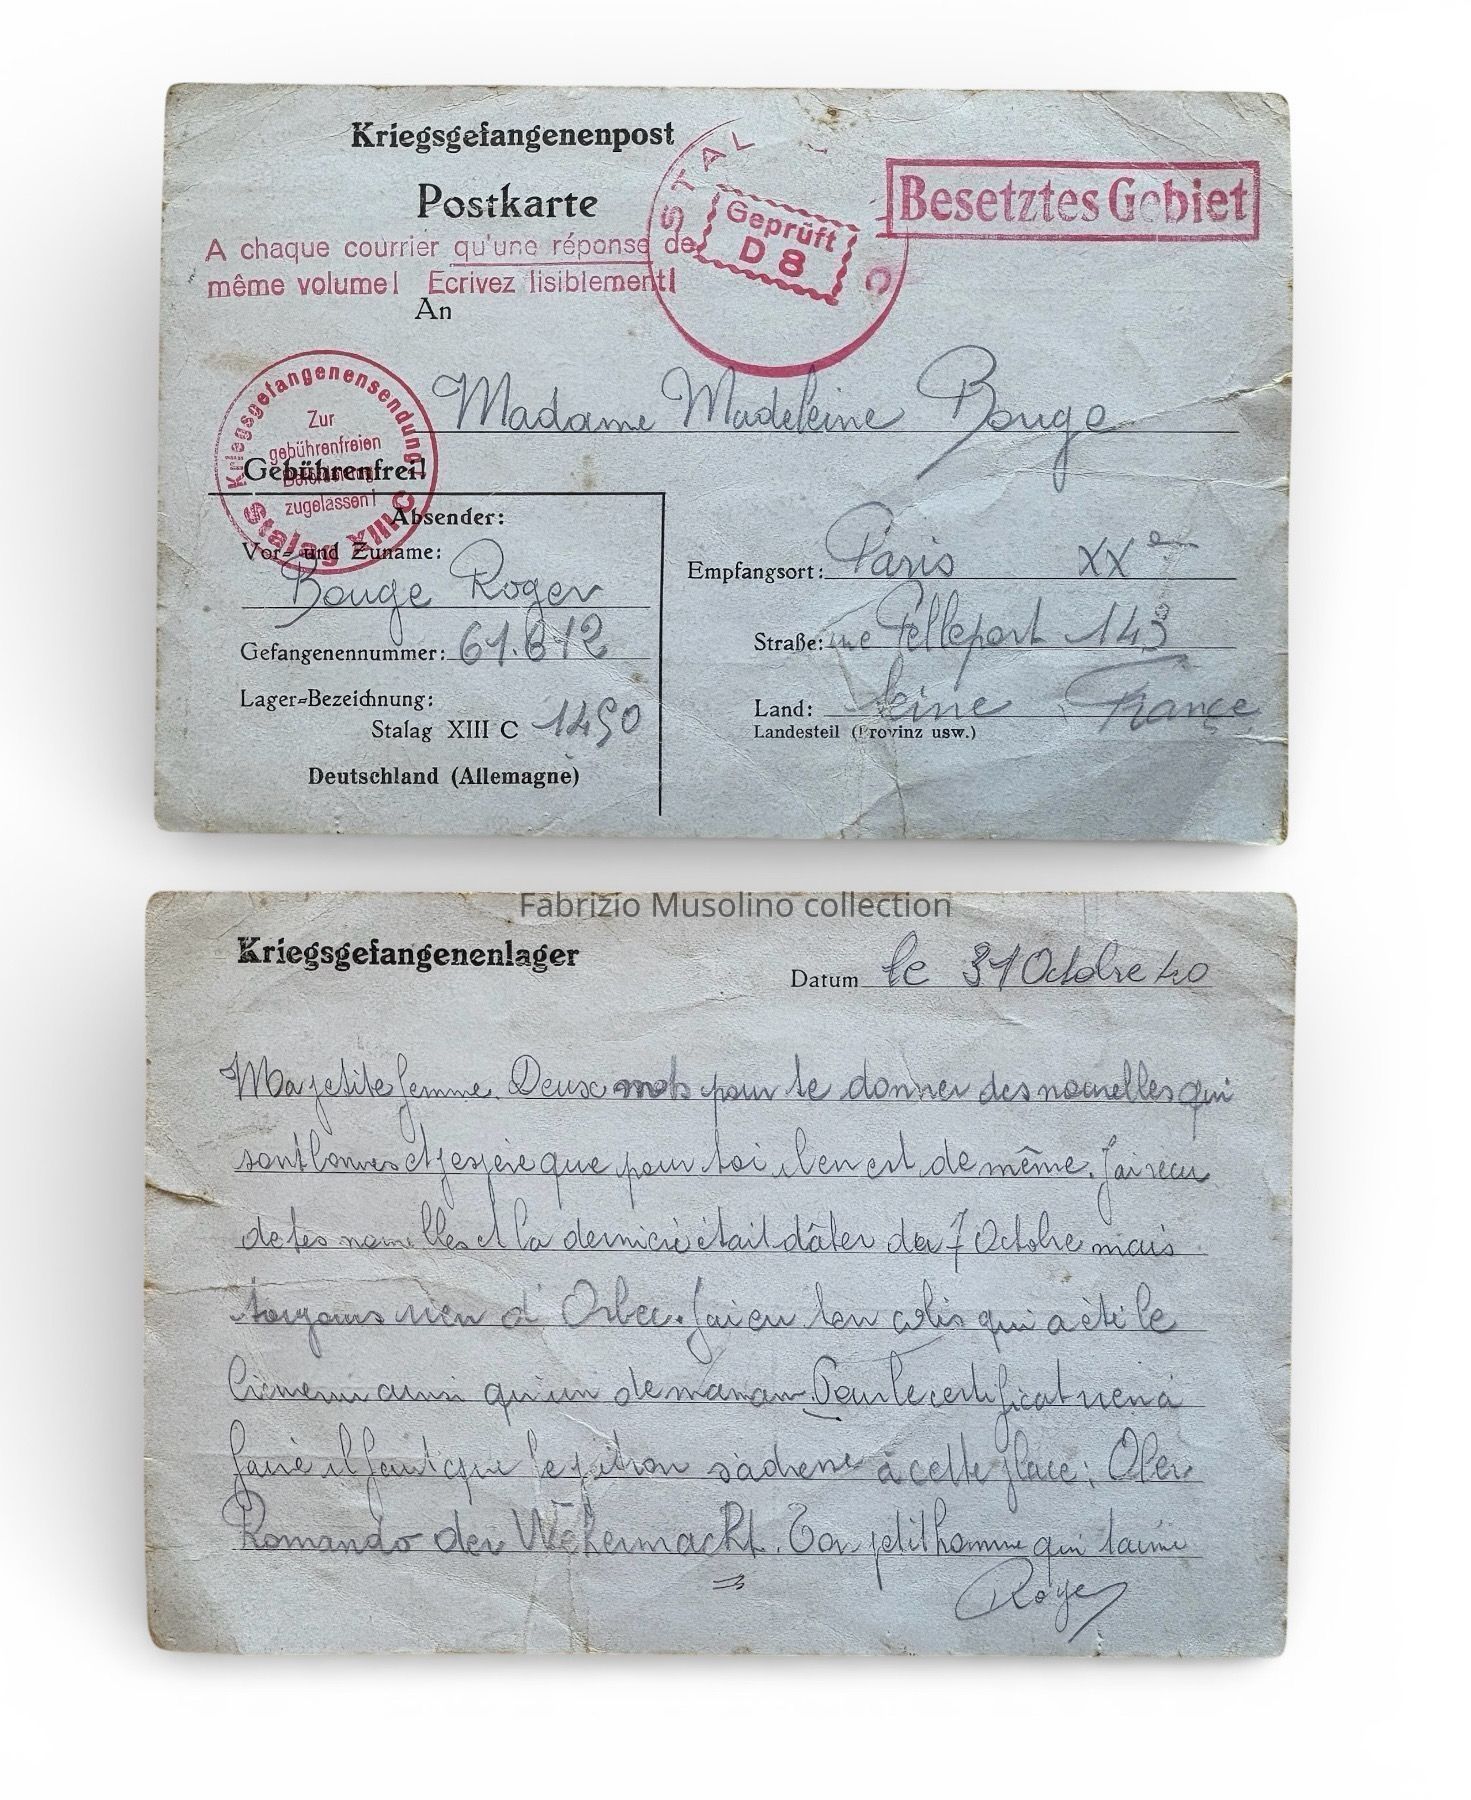 Kriegsgefangenenpost
Postkarte
A chaque courrier qu'une réponse de
même volume! Ecrivez lisiblement!
STAL C
Geprüft
D 8
Besetztes Gebiet
An
Madame Madeleine Bouge
Kriegsgefangenensendung
Zur
gebührenfreien
zugelassen!
Stalag XIII C
Gebührenfrei!
Absender:
Vor- und Zuname:
Bouge Roger
Gefangenennummer: 61.612
Lager-Bezeichnung:
Stalag XIII C 1490
Deutschland (Allemagne)
Empfangsort: Paris XXe
Straße: rue Pelleport 143
Land: Seine France
Landesteil (Provinz usw.)
Fabrizio Musolino collection
Kriegsgefangenenlager
Datum le 31 Octobre 40
Ma petite femme. Deux mots pour te donner des nouvelles qui
sont bonnes et j'espère que pour toi il en est de même. J'ai reçu
de tes nouvelles et la dernière était dâter du 7 Octobre mais
toujours rien d'Orbec. J'ai eu ton colis qui a été le
bienvenu ainsi qu'un de maman. Pour le certificat rien à
faire il faut que le patron s'adresse à cette place: Ober
Komando der Wehermacht. Ton petit homme qui t'aime
Roger